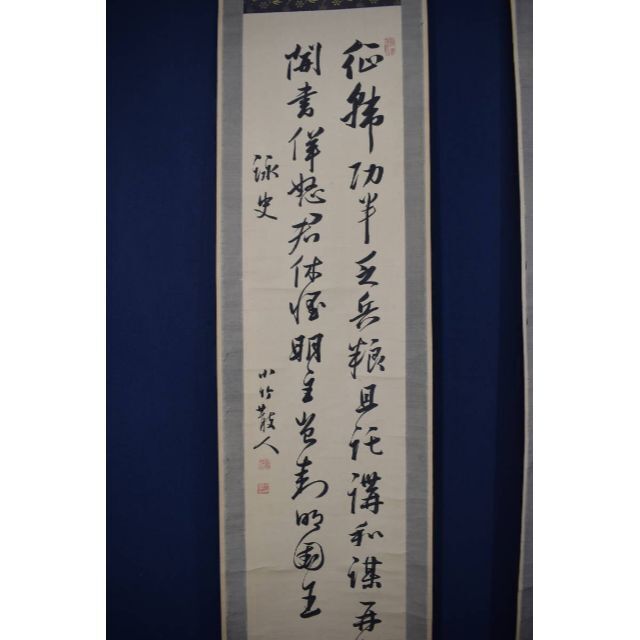 征韓功半乏兵粮且託講和謀再
開書佯怒君休怪明主封明国王
詠史
小竹散人